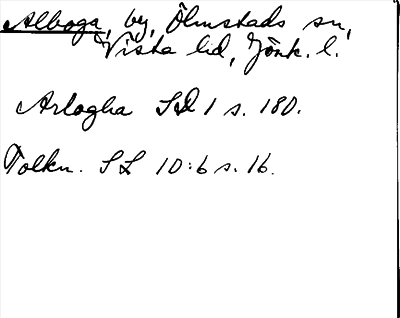 Alboga, by, Ölmstads sn,
Vista hd, Jönk. l.
Arlogha SD 1 s. 180.
Tolkn. SL 10:6 s. 16.